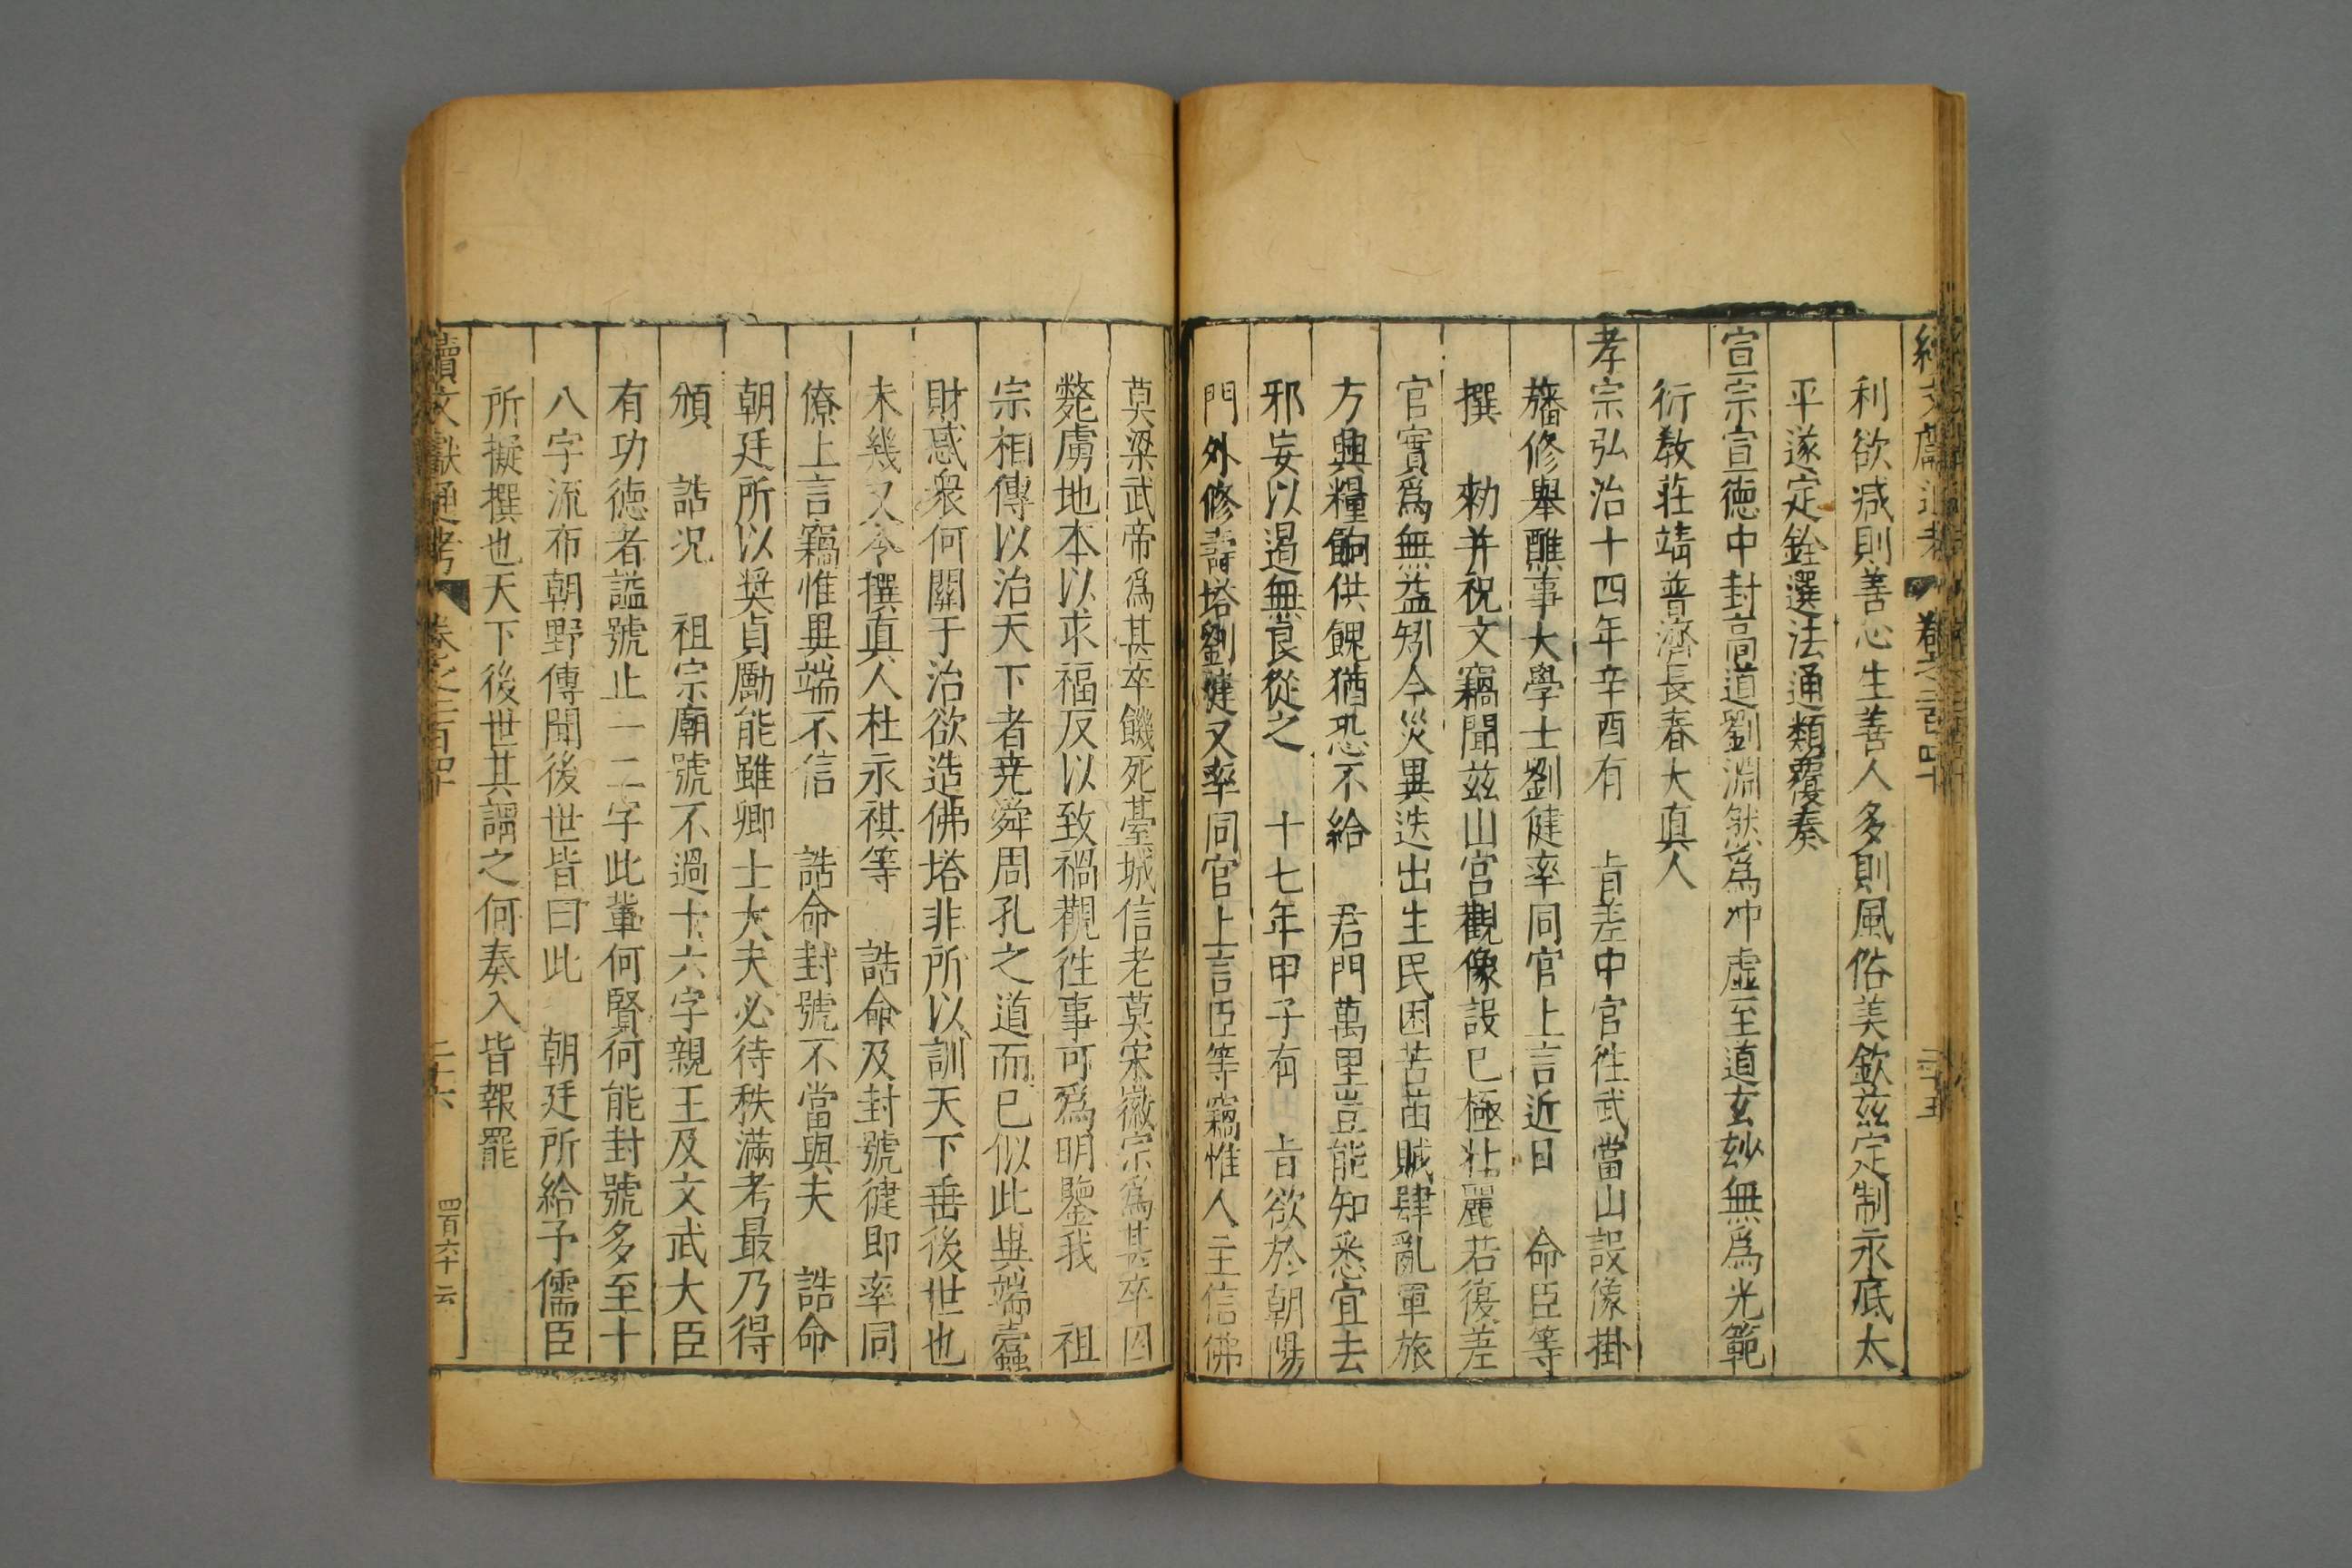 續文獻通考 卷之二百四十 二十五
利欲减則善心生善人多則風俗美欽兹定制永底太
平遂定銓選法通類覆奏
宣宗宣德中封高道劉淵然爲冲虛至道玄玅無爲光範
衍教莊靖普濟長春大真人
孝宗弘治十四年辛酉有 旨差中官徃武當山設像掛
旛修舉醮事大學士劉健率同官上言近日 命臣等
撰 勑并祝文竊聞兹山宮觀像設已極壯麗若復差
官實爲無益矧今災異迭出生民困苦苗賊肆亂軍旅
方興糧餉供餽猶恐不給 君門萬里豈能知悉宜去
邪妄以遏無良從之 十七年甲子有 旨欲於朝陽
門外修壽塔劉健又率同官上言臣等竊惟人主信佛
莫梁武帝爲甚卒餓死臺城信老莫宋徽宗爲甚卒囚
斃虜地本以求福反以致禍觀徃事可爲明鑒我 祖
宗相傳以治天下者尭舜周孔之道而已似此異端蠧
財惑衆何關于治欲造佛塔非所以訓天下垂後世也
未幾又令撰真人杜永祺等 誥命及封號健即率同
僚上言竊惟異端不信 誥命封號不當與夫 誥命
朝廷所以奨貞勵能雖卿士大夫必待秩滿考最乃得
頒 誥况 祖宗廟號不過十六字親王及文武大臣
有功德者謚號止一二字此軰何賢何能封號多至十
八字流布朝野傳聞後世皆曰此 朝廷所給予儒臣
所擬撰也天下後世其謂之何奏入皆報罷
續文獻通考 卷之二百四十 二十六 四百六十 云